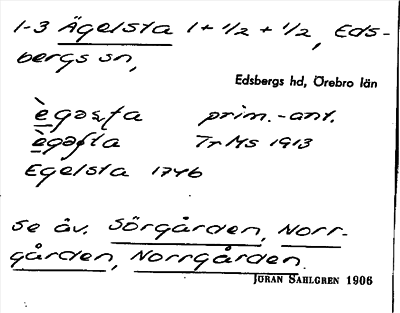 1-3 Ägelsta 1 + 1/2 + 1/2, Eds-
bergs sn,
Edsbergs hd, Örebro län
ègəʂta prim.-ant.
ègəʃta TrMs 1913
Egelsta 1746
se äv. Sörgården, Norr-
gården, Norrgården.
JÖRAN SAHLGREN 1906